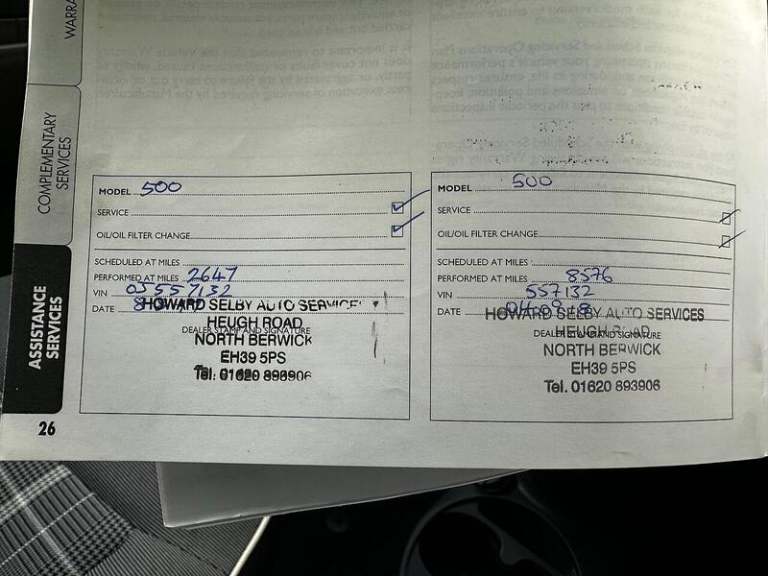 COMPLEMENTARY
SERVICES
ASSISTANCE
SERVICES
26
MODEL 500
SERVICE
OIL/OIL FILTER CHANGE
SCHEDULED AT MILES
PERFORMED AT MILES 2647
VIN 05557132
DATE
HOWARD SELBY AUTO SERVICE
DEALER STAMP AND SIGNATURE
HEUGH ROAD
NORTH BERWICK
EH39 5PS
Tel. 01620 893906
MODEL 500
SERVICE
OIL/OIL FILTER CHANGE
SCHEDULED AT MILES
PERFORMED AT MILES 8576
VIN 557132
DATE
HOWARD SELBY AUTO SERVICES
DEALER STAMP AND SIGNATURE
HEUGH ROAD
NORTH BERWICK
EH39 5PS
Tel. 01620 893906